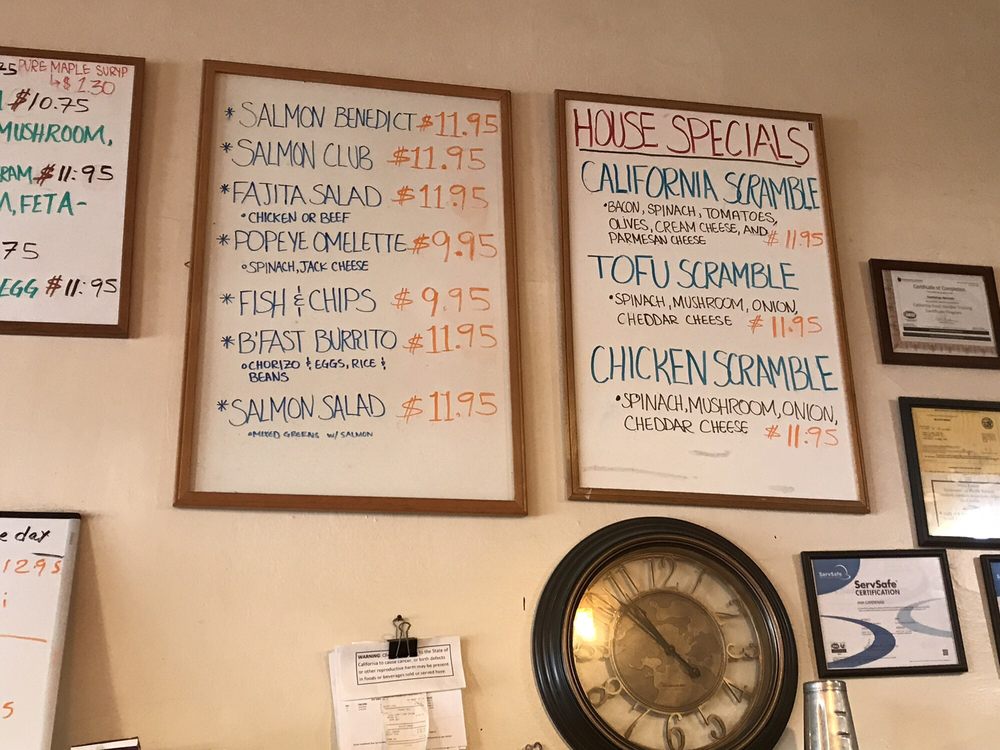 PURE MAPLE SURYP
↳$1.30
$10.75
MUSHROOM,
RAM $11.95
, FETA-
75
EGG $11.95
* SALMON BENEDICT $11.95
* SALMON CLUB $11.95
* FAJITA SALAD $11.95
• CHICKEN OR BEEF
* POPEYE OMELETTE $9.95
• SPINACH, JACK CHEESE
* FISH & CHIPS $9.95
* B'FAST BURRITO $11.95
• CHORIZO & EGGS, RICE &
BEANS
* SALMON SALAD $11.95
• MIXED GREENS W/ SALMON
HOUSE SPECIALS
CALIFORNIA SCRAMBLE
• BACON, SPINACH, TOMATOES,
OLIVES, CREAM CHEESE, AND
PARMESAN CHEESE $11.95
TOFU SCRAMBLE
• SPINACH, MUSHROOM, ONION,
CHEDDAR CHEESE $11.95
CHICKEN SCRAMBLE
• SPINACH, MUSHROOM, ONION,
CHEDDAR CHEESE $11.95
Certificate of Completion
e day
1295
i
5
to the State of
California to cause cancer, or birth defects
or other reproductive harm may be present
in foods or beverages sold or served here.
12
4
5
6
ServSafe
ServSafe
CERTIFICATION